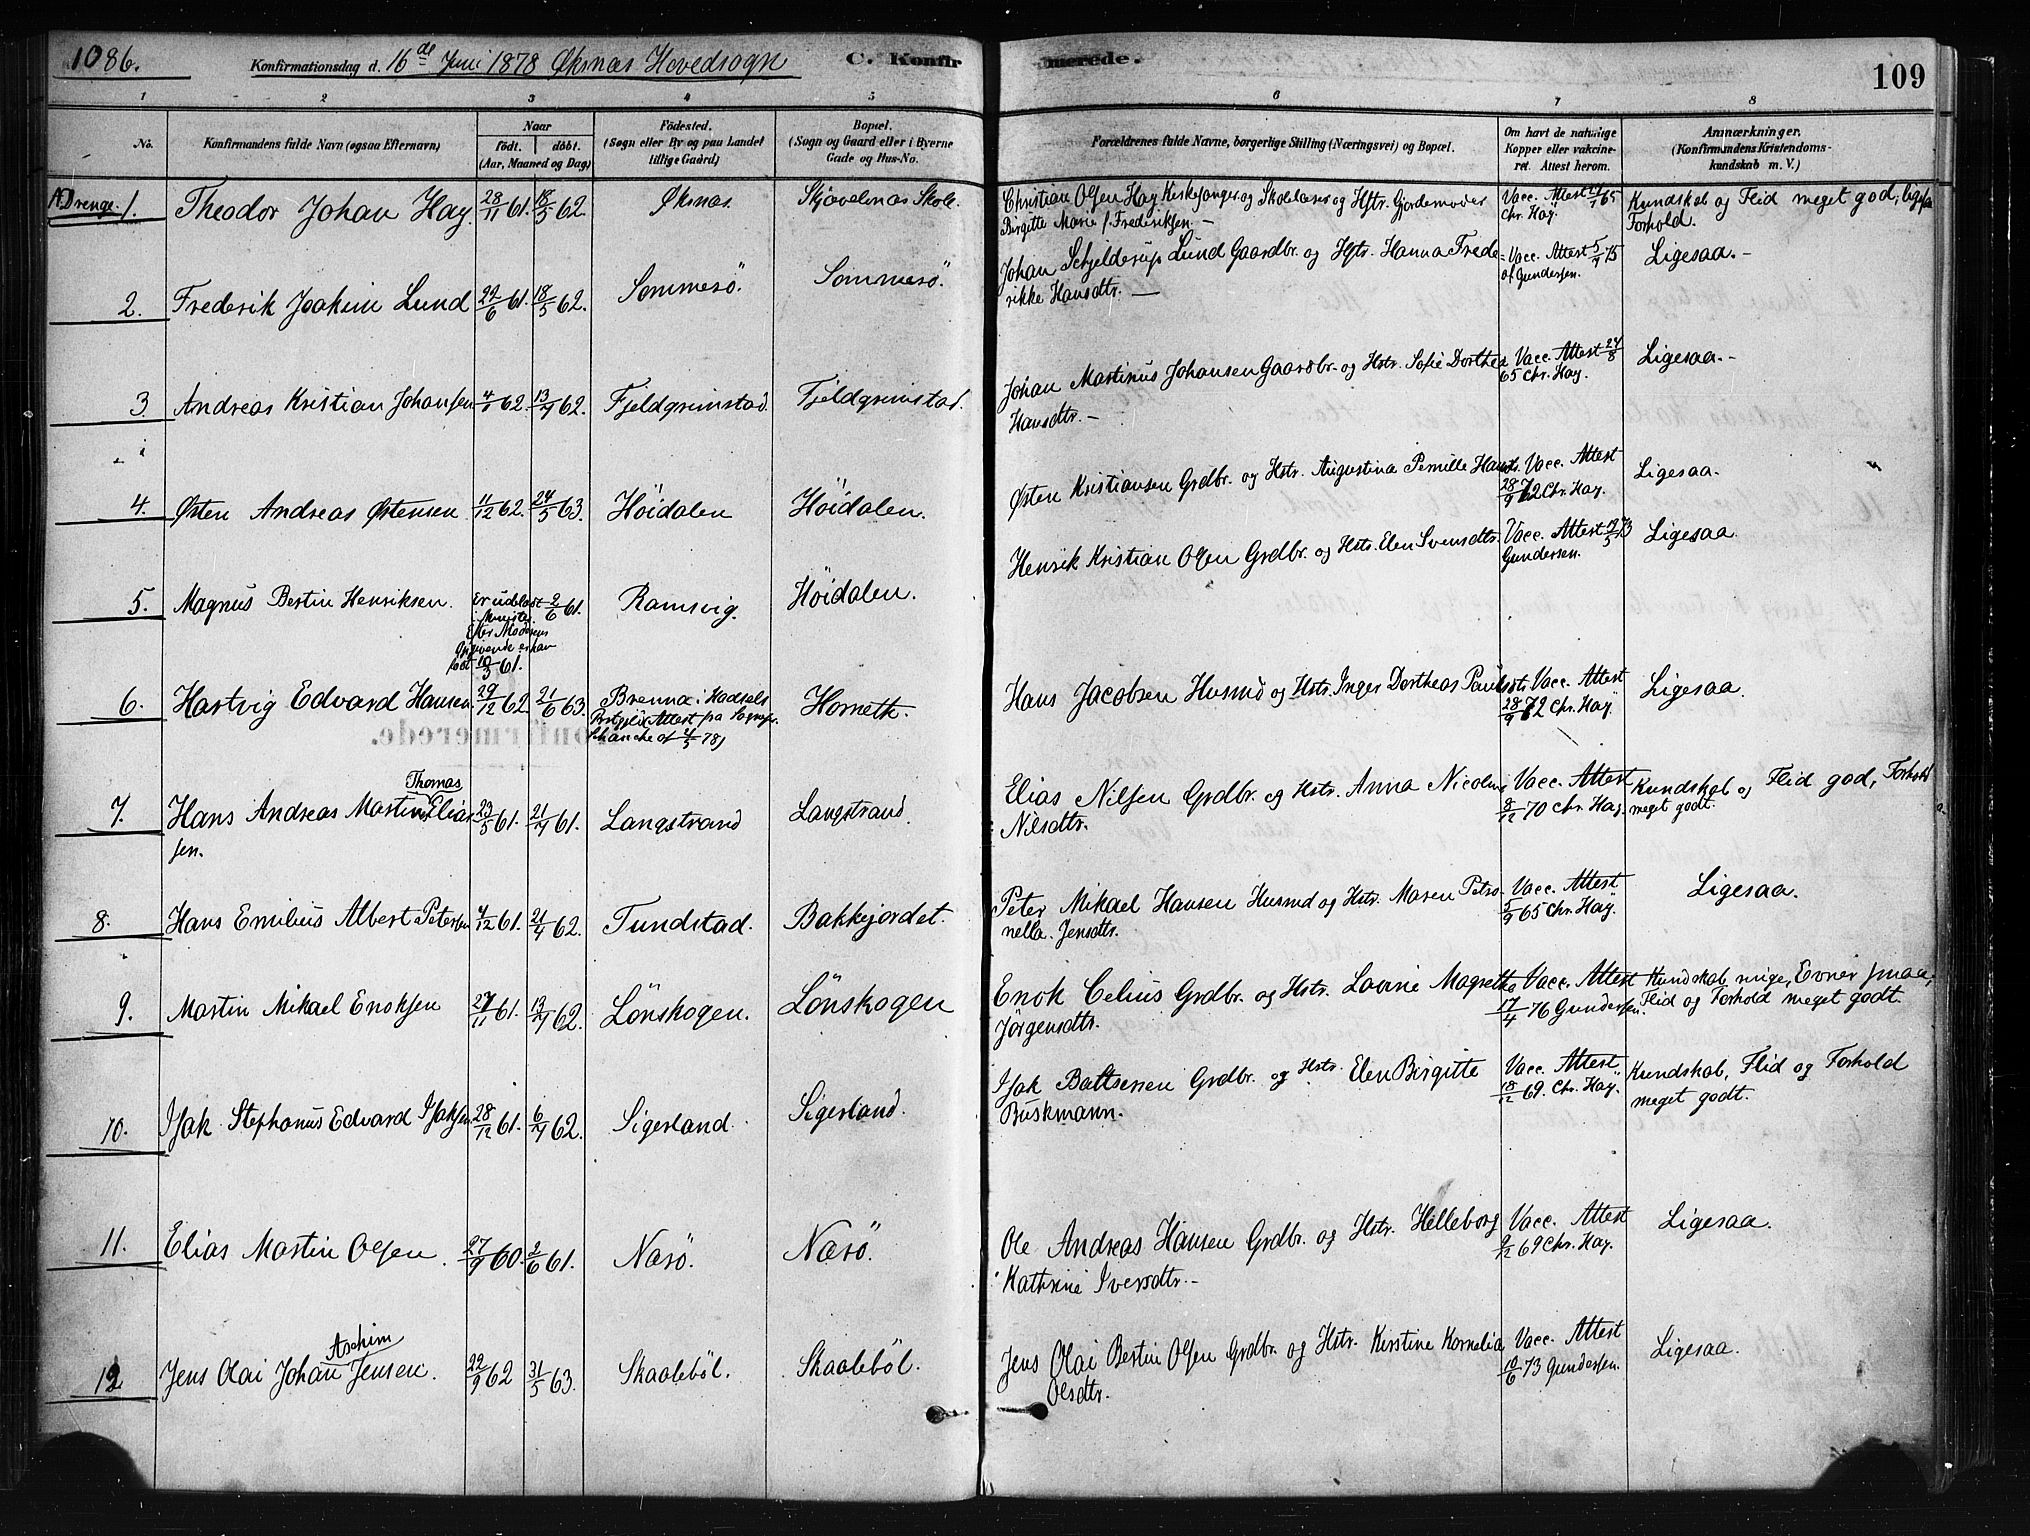 1086.
Konfirmationsdag d. 16de Juni 1878 Øksnæs Hovedsogn
C. Konfirmerede.
109
1 2 3 4 5 6 7 8
No.
Konfirmandens fulde Navn (ogsaa Efternavn)
Naar
födt. döbt.
(Aar, Maaned og Dag)
Födested.
(Sogn eller By og paa Landet
tillige Gaard)
Bopæl.
(Sogn og Gaard eller i Byerne
Gade og Hus-No.
Forældrenes fulde Navne, borgerlige Stilling (Næringsvei) og Bopæl.
Om havt de naturlige
Kopper eller vakcine-
ret. Attest herom.
Anmærkninger.
(Konfirmandens Kristendoms-
kundskab m. V.)
A. Drenge. 1. Theodor Johan Hay 28/11 61. 18/5 62. Øksnæs Skjævelenæs Skole. Christian Olsen Hay Kirkesanger og Skolelærer og Hstr. Gjordemoder
Birgitte Marie f. Frederiksen.- Vacc. Attest 65 Chr. Hay. Kundskab og Flid meget god, ligesaa
Forhold.
2. Frederik Joakim Lund 22/6 61. 18/5 62. Sommerö. Sommerö. Johan Schjelderup Lund Gaardbr. og Hstr. Hanna Frede-
rikke Hansdtr. — Vacc. Attest 5/7 75
af Gundersen. Ligesaa.-
3 Andreas Kristian Johansen 4/1 62. 13/4 62. Fjeldgrimstad. Fjeldgrimstad. Johan Martinus Johansen Gaardbr. og Hstr. Sofie Dorthea
Hansdtr.- Vacc. Attest 24/8
65 Chr. Hay. Ligesaa.-
4. Østen Andreas Østensen 11/12 62. 24/5 63. Höidalen Höidalen. Østen Kristiansen Grdbr. og Hstr. Augustina Pernille Hansdtr. Vacc. Attest
28/9 72 Chr. Hay. Ligesaa.
5. Magnus Bertin Henriksen. Er udeladt
i Minist.
Efter Moderens
Opgivende er han
född 10/3 61. 2/6 61. Ramsvig. Höidalen. Henrik Kristian Olsen Grdbr. og Hstr. Elen Svensdtr. Vacc. Attest 73
Gundersen. Ligesaa.
6. Hartvig Edvard Hansen 29/12 62. 21/6 63. Brenna i Hadsels
Prstgj. (Attest fra Sognepr.
Schanche af 4/5 78) Horneth. Hans Jacobsen Husmd og Hstr. Inger Dortheas Paulsdtr. Vacc. Attest
28/9 72 Chr. Hay. Ligesaa.
7. Hans Andreas Martin Thomas Elias
sen. 23/5 61. 21/7 61. Langstrand Langstrand. Elias Nilsen Grdbr. og Hstr. Anna Nicoline
Nilsdtr. Vacc. Attest
8/12 70 Chr. Hay. Kundskab og Flid god, Forhold
meget godt.
8. Hans Emilius Albert Petersen 4/12 61. 21/4 62. Tundstad. Bakkejordet. Peter Mikael Hansen Husmd og Hstr. Maren Petro-
nella. Jensdtr. Vacc. Attest
5/9 65 Chr. Hay. Ligesaa.
9. Martin Mikael Enoksen 27/11 61. 13/4 62. Lönskogen. Lönskogen Enok Celius Grdbr. og Hstr. Lovine Magrethe
Jörgensdtr. Vacc. Attest
17/4 76 Gundersen. Kundskab ringe, Evner smaa,
Flid og Forhold meget godt.
10. Isak Stephanus Edvard Isaksen 28/12 61. 6/4 62. Sigerland. Sigerland. Isak Baltsersen Grdbr. og Hstr. Elen Birgitte
Buskmann. Vacc. Attest
18/12 69. Chr. Hay. Kundskab, Flid og Forhold
meget godt.
11. Elias Martin Olsen. 27/9 60. 2/6 61. Næsö. Næsö. Ole Andreas Hansen Grdbr. og Hstr. Helleborg
Kathrine Iversdtr.- Vacc. Attest
9/12 69 Chr. Hay. Ligesaa.
12 Jens Olai Johan Aschim Jensen. 22/9 62 31/5 63. Skaaleböl. Skaaleböl. Jens Olai Bertin Olsen Grdbr. og Hstr. Kerstine Kornelia
Olsdtr. Vacc. Attest
10/6 73 Gundersen. Ligesaa.